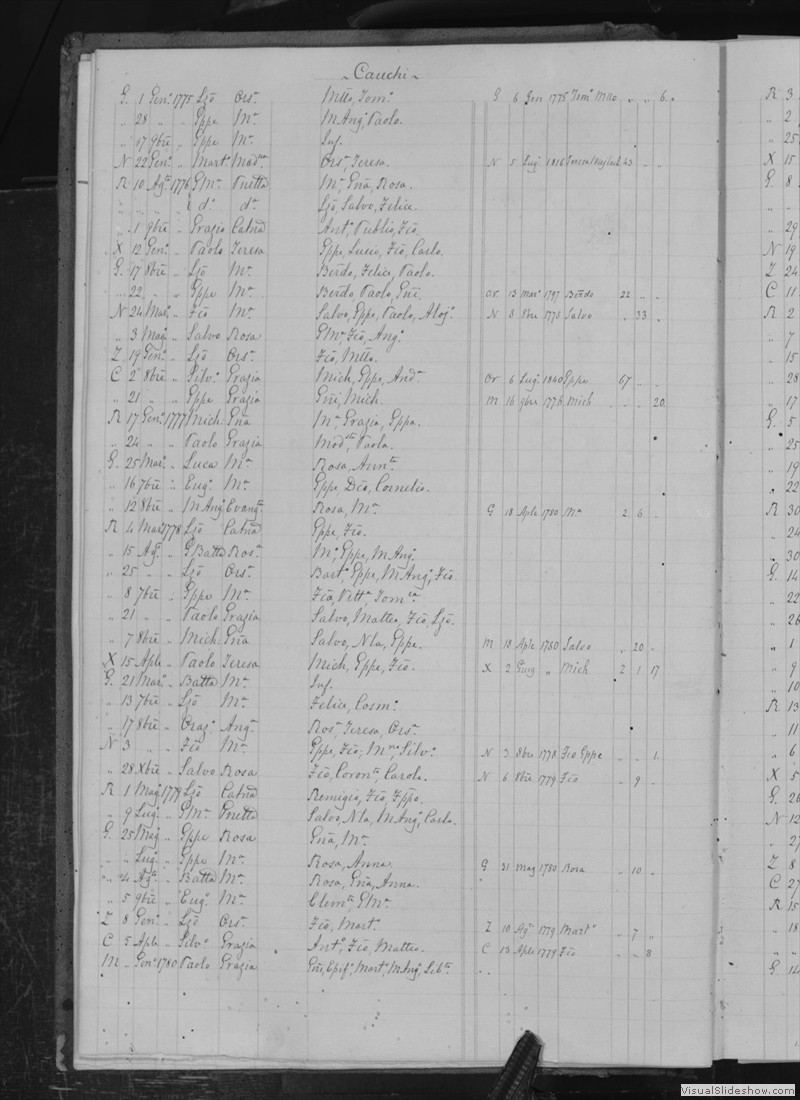 Cauchi
G. 1 Gen.º 1775 Ljō Ors.ª Mtto, Tom.º G 6 Gen 1775 Tom.º Mtto " " 6.
" 28 " " Gppe M.ª M Ang.º Paolo.
" 17 9bre " Gppe M.ª Inf.
N 22 Gen.º " Mart.º Mad.na Ors.ª Teresa. N 5 Lug.º 1816 43 " "
R 10 Ag.to 1776 GMª Pnetta M.ª Gña, Rosa.
" " " " d.º d.ª Ljō, Salvo, Felice.
" 1 9bre " Grazio Catña Ant.º Publio, Fcō.
X 12 Gen.º " Paolo Teresa Gppe, Lucio, Fcō, Carlo.
G. 17 8bre " Ljō M.ª Berdo, Felice, Paolo.
" 22 " " Gppe M.ª Berdo Paolo, Gñi. Or 13 Mar.º 1797 Berdo 22 " "
N 24 Mar.º " Fcō M.ª Salvo, Gppe, Paolo, Aloj.º N 8 8bre 1778 Salvo " 33 "
" 3 Mag.º " Salvo Rosa GMª Fcō, Ang.º
Z 19 Gen.º " Ljō Ors.ª Fcō, Mtto.
C 2 8bre " Silv.º Grazia Mich, Gppe, And.ª Or 6 Lug.º 1840 Gppe 67 " "
" 21 " " Gppe Grazia Gñi, Mich. M 16 9bre 1776 Mich " " 20.
R 17 Gen.º 1777 Mich Gña M.ª Grazia, Gppa.
" 24 " " Paolo Grazia Mod.ta, Paola.
G. 25 Mar.º " Luca M.ª Rosa, Ann.ta
" 16 7bre " Eug.º M.ª Gppe, Dcō, Cornelio.
" 12 8bre " M Ang.º Evang.ta Rosa, M.ª G 18 Aple 1780 M.ª 2 6 "
R 4 Mar.º 1778 Ljō Catña Gppe, Fcō.
" 15 Ag.to " GBatta Ros.ª M.ª, Gppe, M Ang.º
" 25 " " Ljō Ors.ª Bart.º, Gppe, M Ang.º, Fcō
" 8 7bre " Gppe M.ª Fcā, Vitt.ª, Tom.ca
" 21 " " Paolo Grazia Salvo, Matteo, Fcō, Ljō.
" 7 8bre " Mich Gña Salvo, Nla, Gppe. M 18 Aple 1780 Salvo " 20 "
X 15 Aple " Paolo Teresa Mich, Gppe, Fcō. X 2 Giug " Mich 2 1 17
G. 21 Mar.º " Batta M.ª Inf.
" 13 7bre " Ljō M.ª Felice, Cosm.º
" 17 8bre " Oraz.º Ang.ª Ros.ª, Teresa, Ors.ª
N 3 " " Fcō M.ª Gppe, Fcō, M.no, Silv.º N 3 8bre 1778 Fcō Gppe " " 1.
" 28 Xbre " Salvo Rosa Fcō, Coron.to, Carola. N 6 8bre 1779 Fcō " 9 "
R 1 Mag.º 1779 Ljō Catña Remigio, Fcō, Fppo.
" 9 Lug.º " GMª Pnetta Salvo, Nla, M Ang.º, Carlo.
G. 25 Mag.º " Gppe Rosa Gña, M.ª
" " Lug.º " Gppe M.ª Rosa, Anna. G 31 Mag 1780 Rosa " 10 "
" 24 Ag.to " Batta M.ª Rosa, Gña, Anna.
" 5 9bre " Eug.º M.ª Clem.te, GMª
Z 8 Gen.º " Ljō Ors.ª Fcō, Mart.º Z 10 Ag.to 1779 Mart.º " 7 "
C 5 Aple " Silv.º Grazia Ant.º Fcō, Matteo. C 13 Aple 1779 Fcō " " 8
M " Gen.º 1780 Paolo Grazia Gñi, Epif.º, Mart.º, M Ang.º, Lib.to
R 3
" 2
" 25
X 15
G. 8
" 29
N 19
Z 24
C 11
R 2
" 7
" 15
" 28
" 17
G. 5
" 25
" 19
" 22
R 30
" 24
" 30
G. 14
" 22
" 26
" 1
" 9
" 10
R 13
" 11
" 6
X 5
G. 26
N 12
" 27
Z 8
C 27
R 15
" 18
" "
G. 14
VisualSlideshow.com